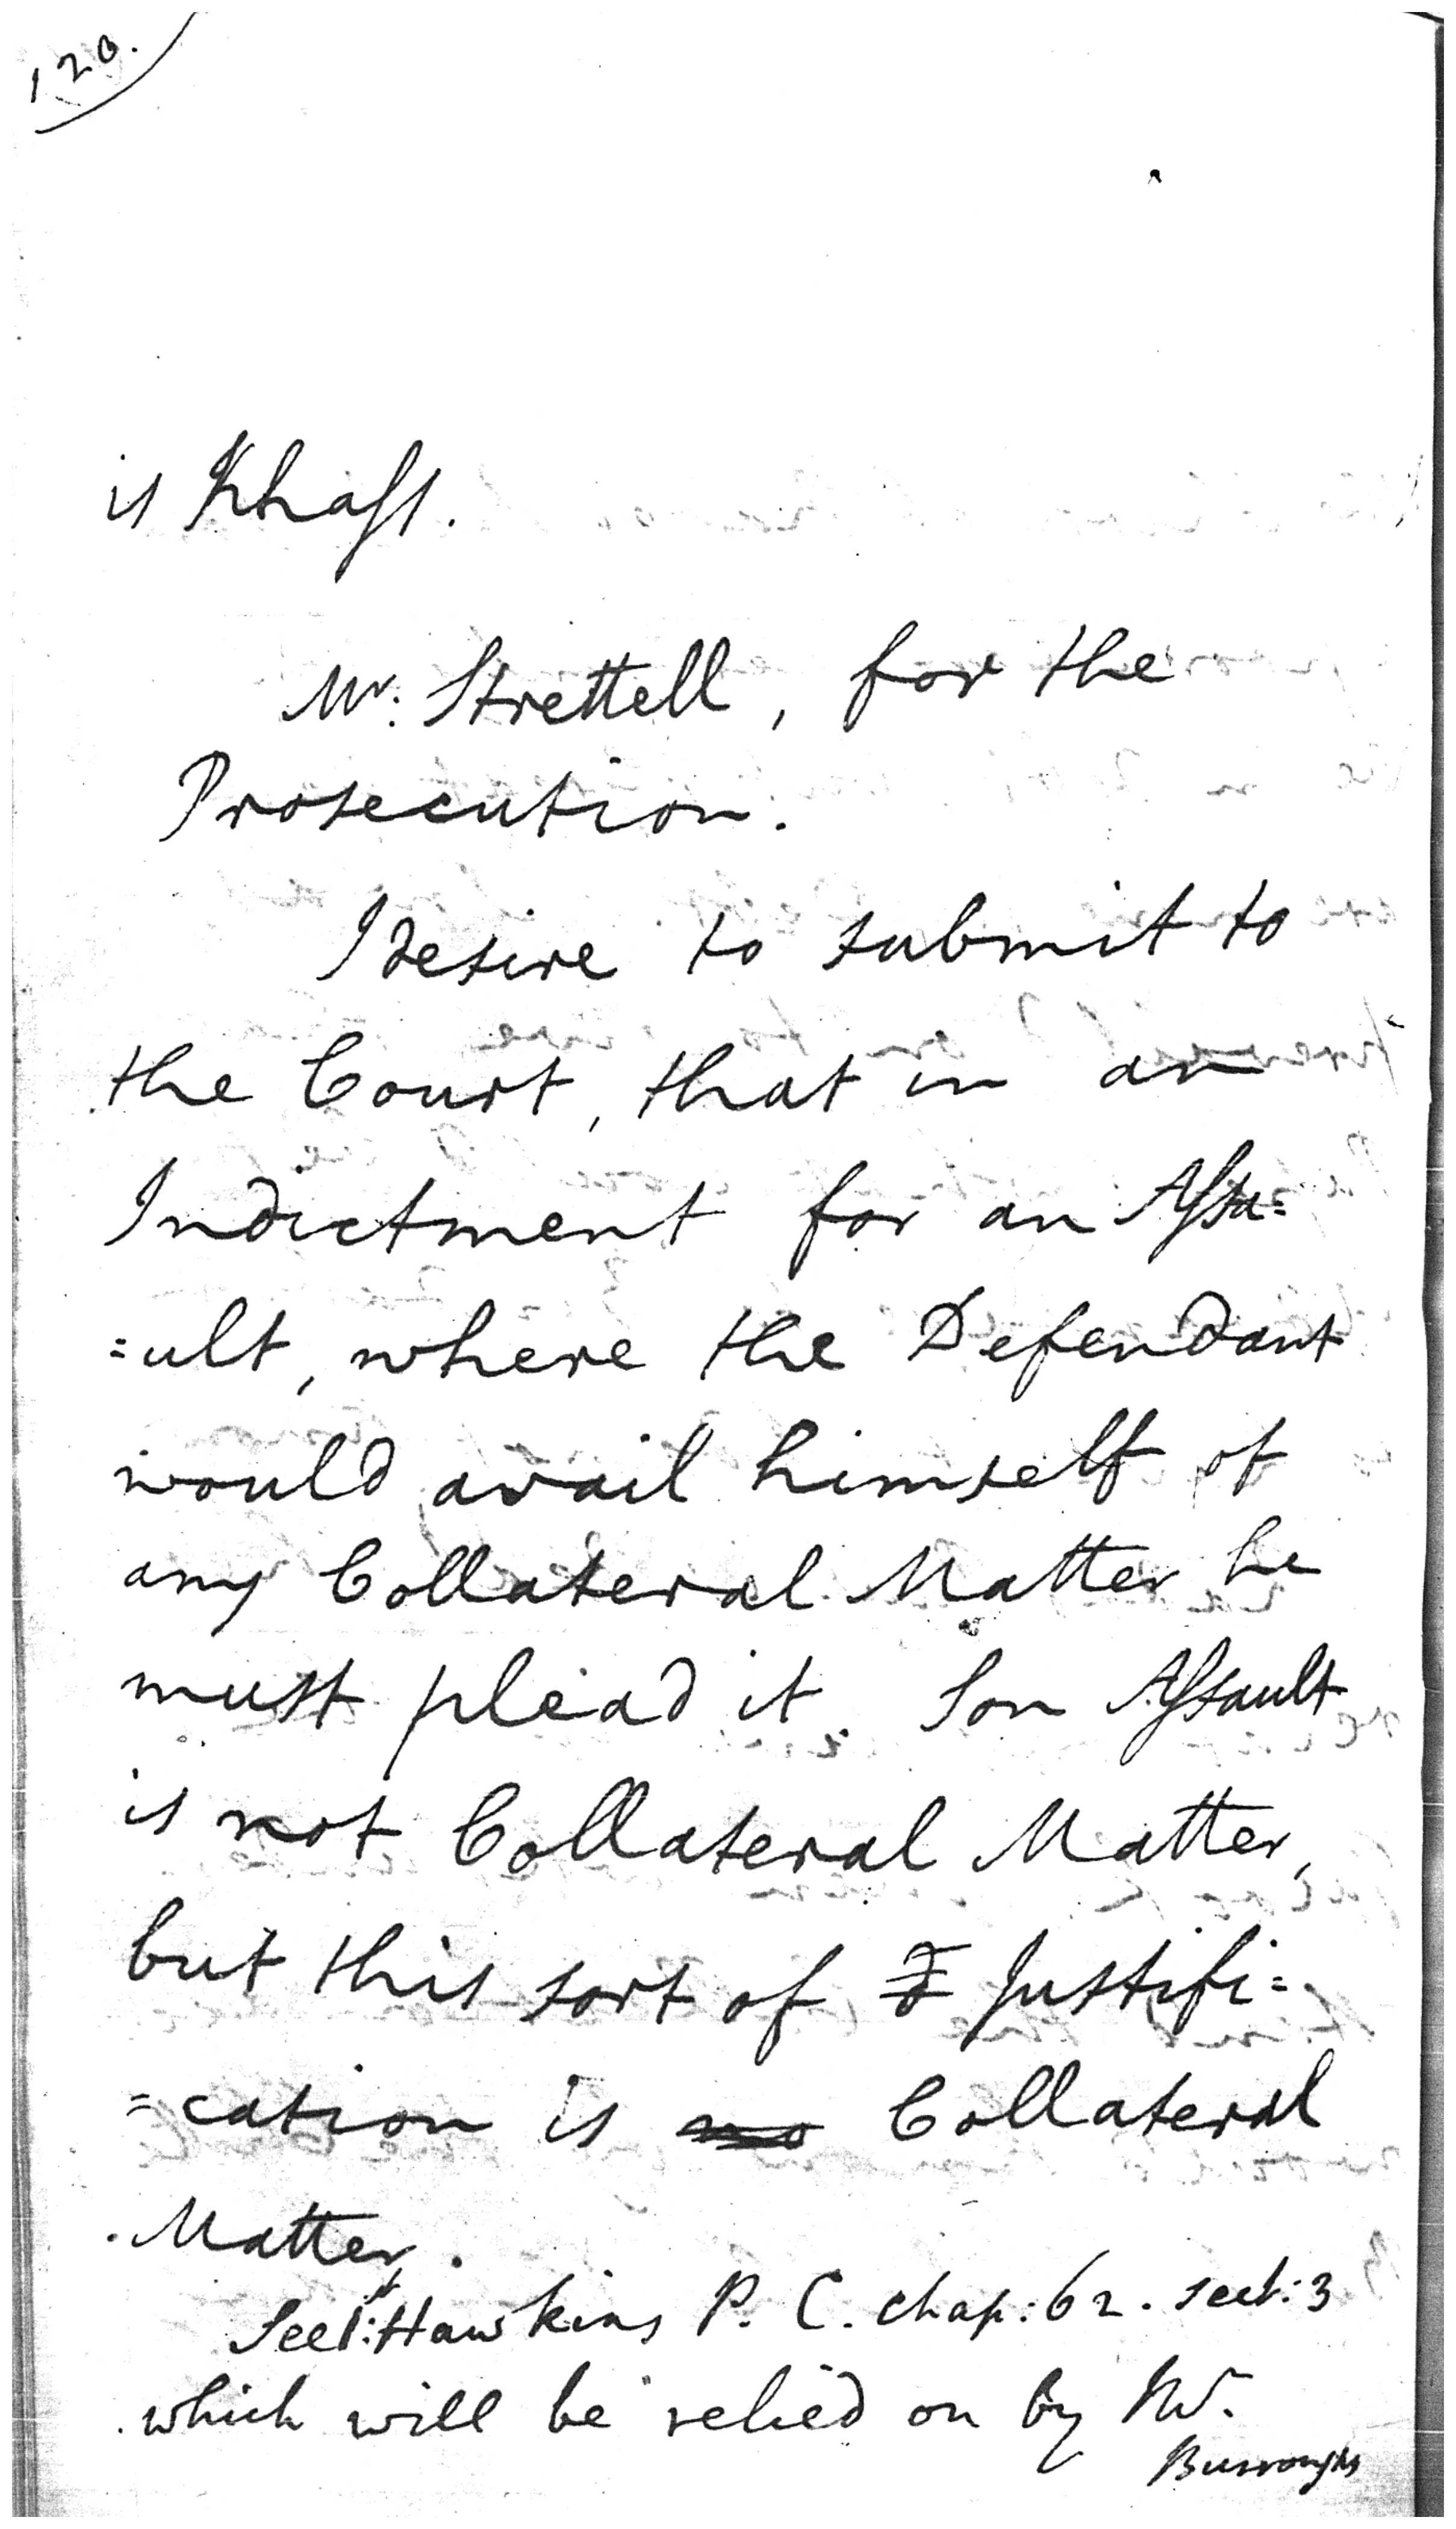 120.
is Khass.
Mr. Strettell, for the
Prosecution.
I desire to submit to
the Court, that in an
Indictment for an Assa=
=ult, where the Defendant
would avail himself of
any Collateral Matter he
must plead it. Son Assault
is not Collateral Matter,
but this sort of Justifi=
=cation is no Collateral
Matter.
See 1st: Hawkins P. C. chap: 62. sect: 3
which will be relied on by Mr.
Burroughs